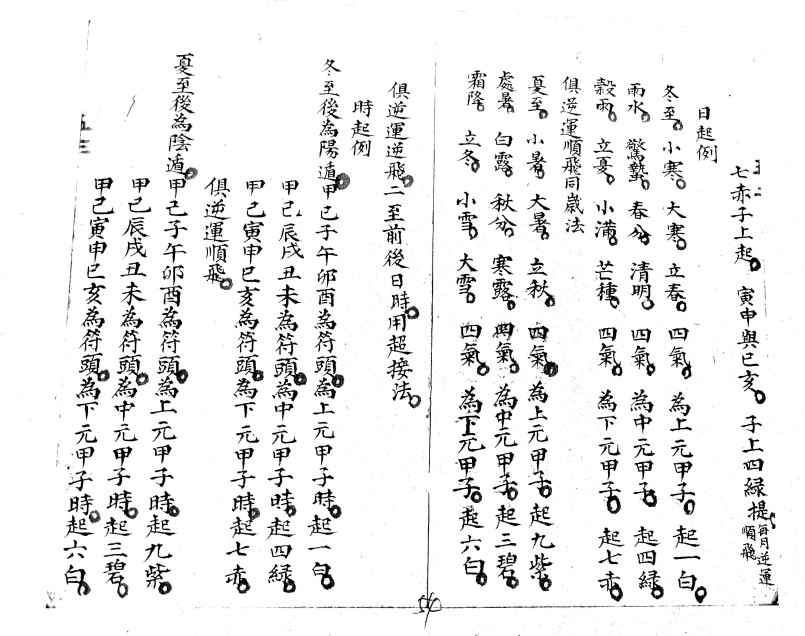 七赤子上起。寅申與巳亥。子上四緑提。每月逆運
順飛
日起例
冬至。小寒。大寒。立春。四氣。為上元甲子。起一白。
雨水。驚蟄。春分。清明。四氣。為中元甲子。起四緑。
穀雨。立夏。小滿。芒種。四氣。為下元甲子。起七赤。
俱逆運順飛同歲法
夏至。小暑。大暑。立秋。四氣。為上元甲子。起九紫。
處暑。白露。秋分。寒露。四氣。為中元甲子。起三碧。
霜降。立冬。小雪。大雪。四氣。為下元甲子。起六白。
俱逆運逆飛二至前後日時。用超接法。
時起例
冬至後為陽遁。甲己子午卯酉為符頭。為上元甲子時。起一白。
甲己辰戌丑未為符頭。為中元甲子時。起四緑。
甲己寅申巳亥為符頭。為下元甲子時。起七赤。
俱逆運順飛。
夏至後為陰遁。甲己子午卯酉為符頭。為上元甲子時。起九紫。
甲己辰戌丑未為符頭。為中元甲子時。起三碧。
甲己寅申巳亥為符頭。為下元甲子時。起六白。
54